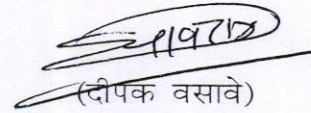 (दीपक वसावे)